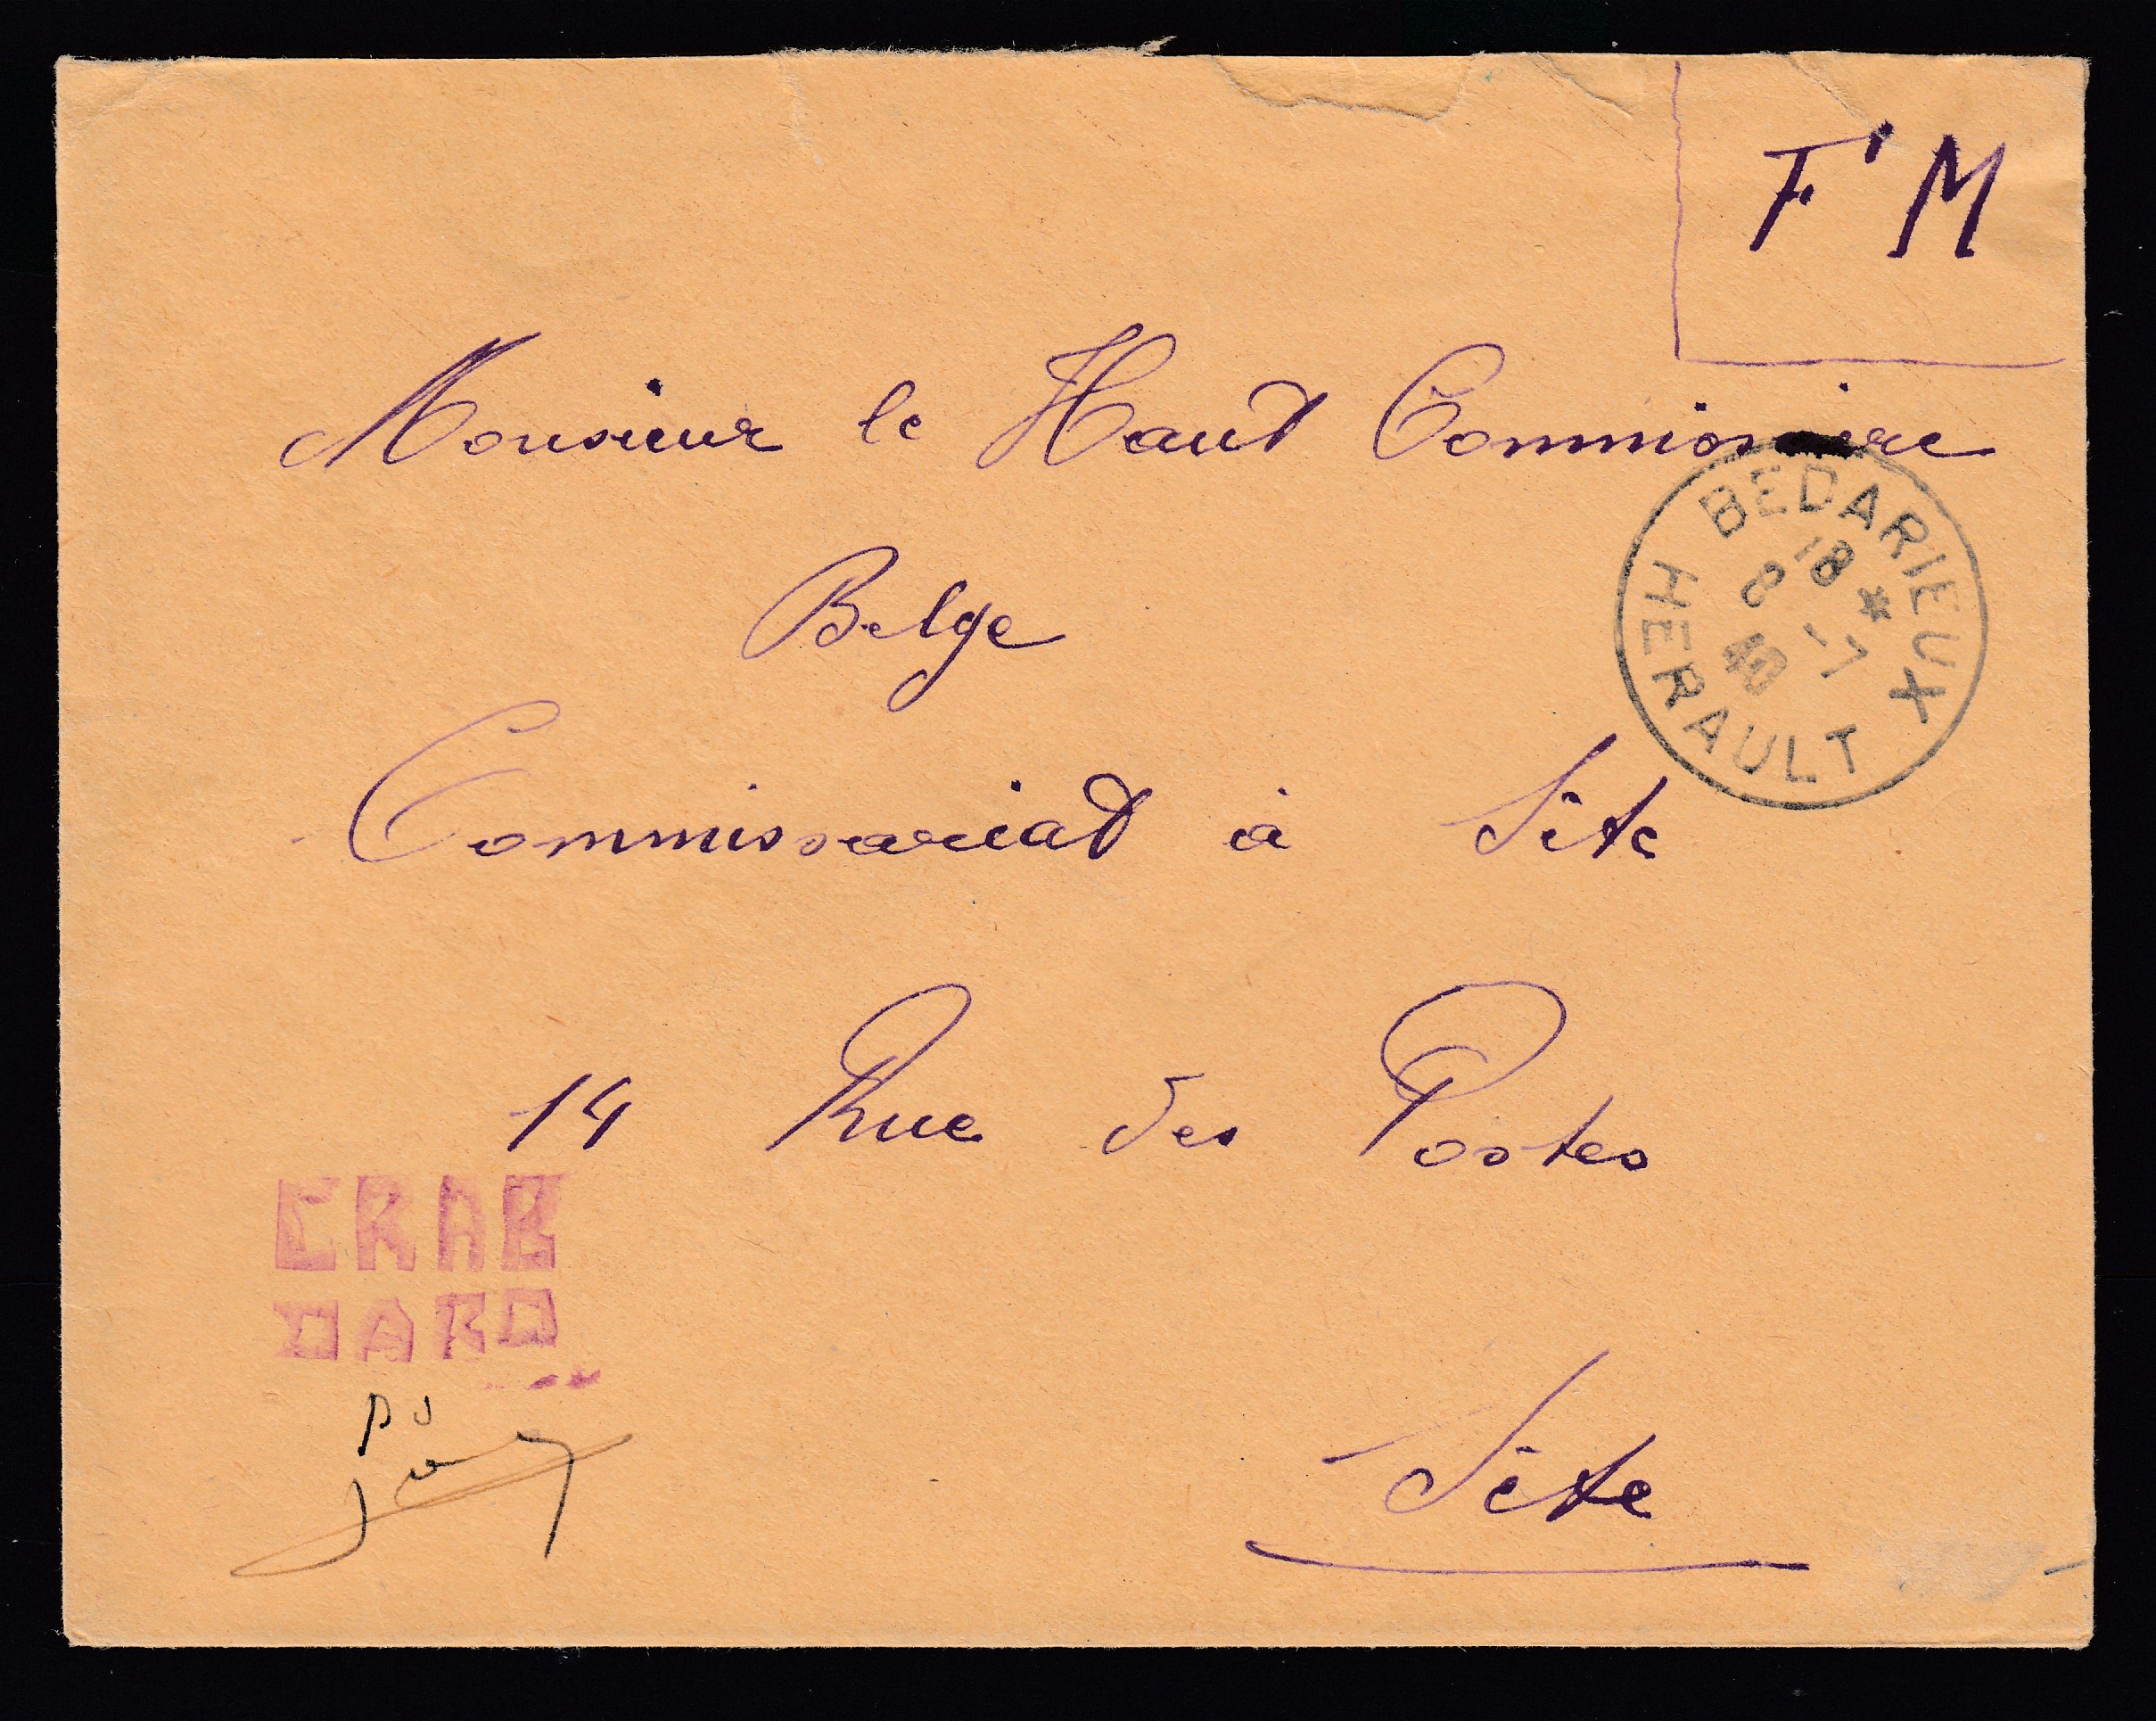 F'M
Monsieur le Haut Commissaire
Belge
Commissariat à Sète
14 Rue des Postes
Sète
BEDARIEUX
18 *
8 -7
40
HERAULT
CRAB
DARD